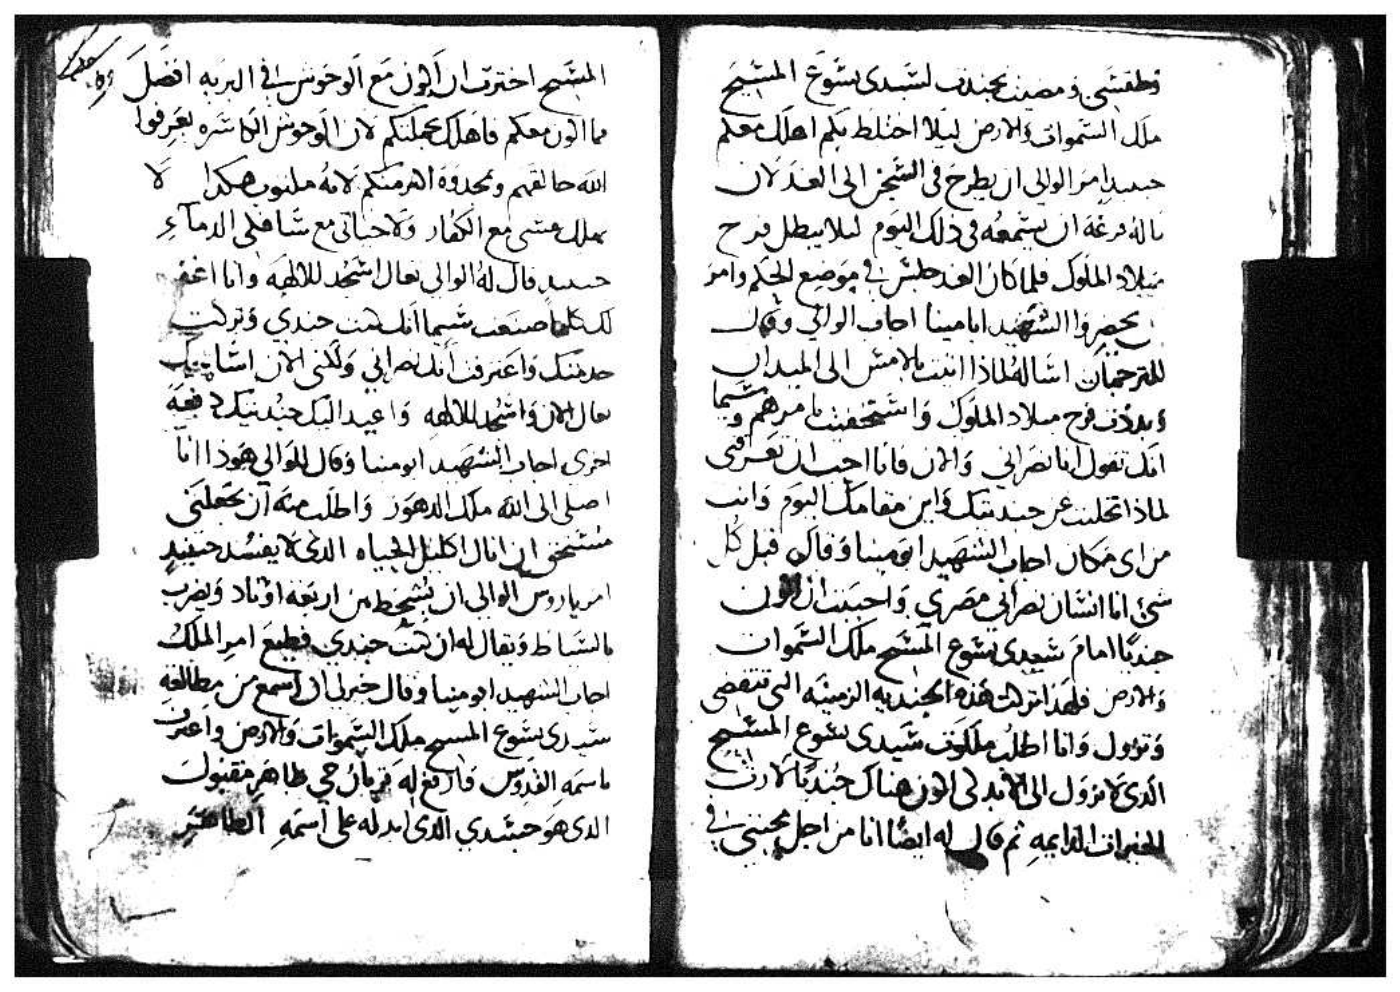 وطقسي ومضيت بجنديت لسيدى يسوع المسيح
ملك السموات والارض ليلا اختلط بكم اهلك معكم
حينيد امر الوالي ان يطرح في السجن الى الغد لان
ما له فرغه ان يسمعه في ذلك اليوم ليلا يبطل فرح
ميلاد الملوك فلما كان الغد جلس في موضع الحكم وامر
ان يحضروا الشهيد ابا مينا اجاب الوالي وقال
للترجمان اساله لماذا اتيت بالامس الى الميدان
وبددت فرح ميلاد الملوك واستخفيت بامرهم وسيما
انك تقول انا نصراني والان فانا احب ان تعرفني
لماذا تخليت عن جنديتك واين مقامك اليوم وانت
من اى مكان اجاب الشهيد ابو مينا وقال قبل كل
شئ انا انسان نصراني مصري واحببت ان اكون
جنديا امام سيدى يسوع المسيح ملك السموات
والارض فلهدا تركت هذه الجنديه الزمنيه التي تنقضى
وتزول وانا اطلب ملكوت سيدى يسوع المسيح
الدى لا تزول الى الابد لكى اكون هناك جنديا لارث
الخيرات الدايمه ثم قال له ايضا انا من اجل محبتي في
المسيح اخترت ان اكون مع الوحوش في البريه افضل
مما اكون معكم فاهلك بجملتكم لان الوحوش الكاسره يعرفوا
الله خالقهم ويمجدوه اكثر منكم لانه مكتوب هكدا لا
تهلك نفسي مع الكفار ولا حياتي مع سافكى الدماء
حينيد قال له الوالى تعال اسجد للالهه وانا اغفر
لك كلما صنعت سيما انك كنت جندي وتركت
خدمتك واعترفت انك نصراني ولكنى الان اسامحك
تعال الان واسجد للالهه واعيد اليك جنديتك دفعه
اخرى اجاب الشهيد ابو مينا وقال للوالي هودا انا
اصلي الى الله ملك الدهور واطلب منه ان يجعلني
مستحق ان انال اكليل الحياه الذى لا يفسد حينيد
امر ياروس الوالي ان يشحط من اربعه اوتاد ويضرب
بالسياط ويقال له ان كنت جندي فطيع امر الملك
اجاب الشهيد ابو مينا وقال خير لى ان اسمع من مطالعه
سيدى يسوع المسيح ملك السموات والارض واعترف
باسمه القدوس وارفع له قربان حي طاهر مقبول
الدى هو جسدي الدى ابدله على اسمه الطاهر